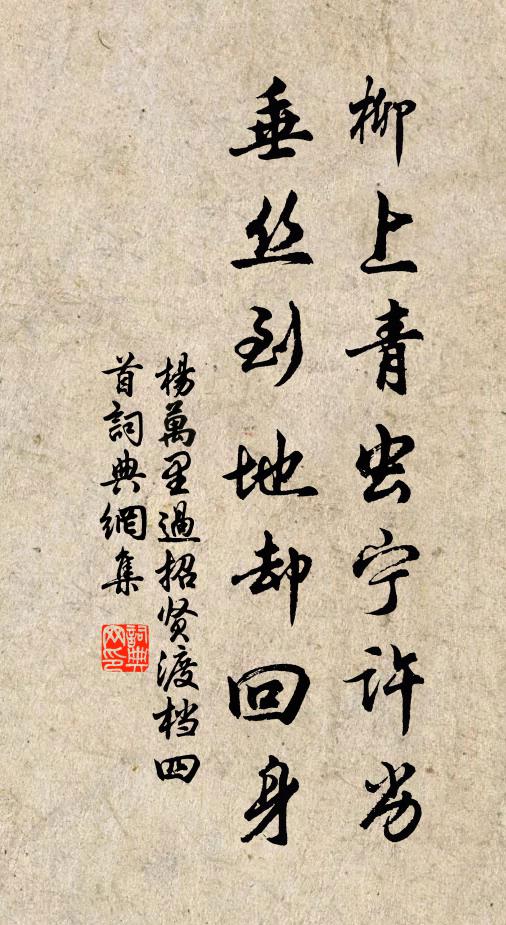 柳上青虫宁许劣
垂丝到地却回身
楊萬里過招贤渡档四
首詞典網集
詞典
网印